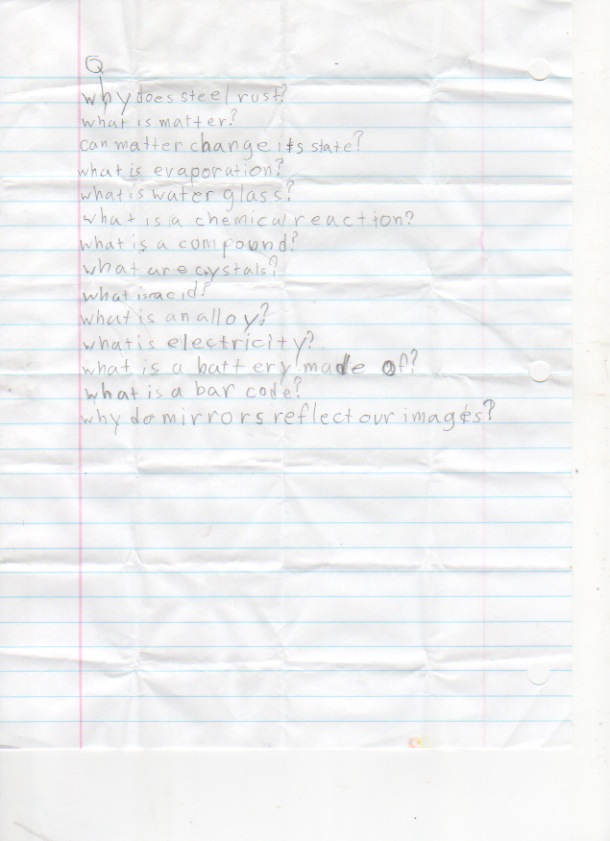 Q
why does steel rust?
what is matter?
can matter change its state?
what is evaporation?
what is water glass?
what is a chemical reaction?
what is a compound?
what are cystals?
what is acid?
what is an alloy?
what is electricity?
what is a battery made of?
what is a bar code?
why do mirrors reflect our images?